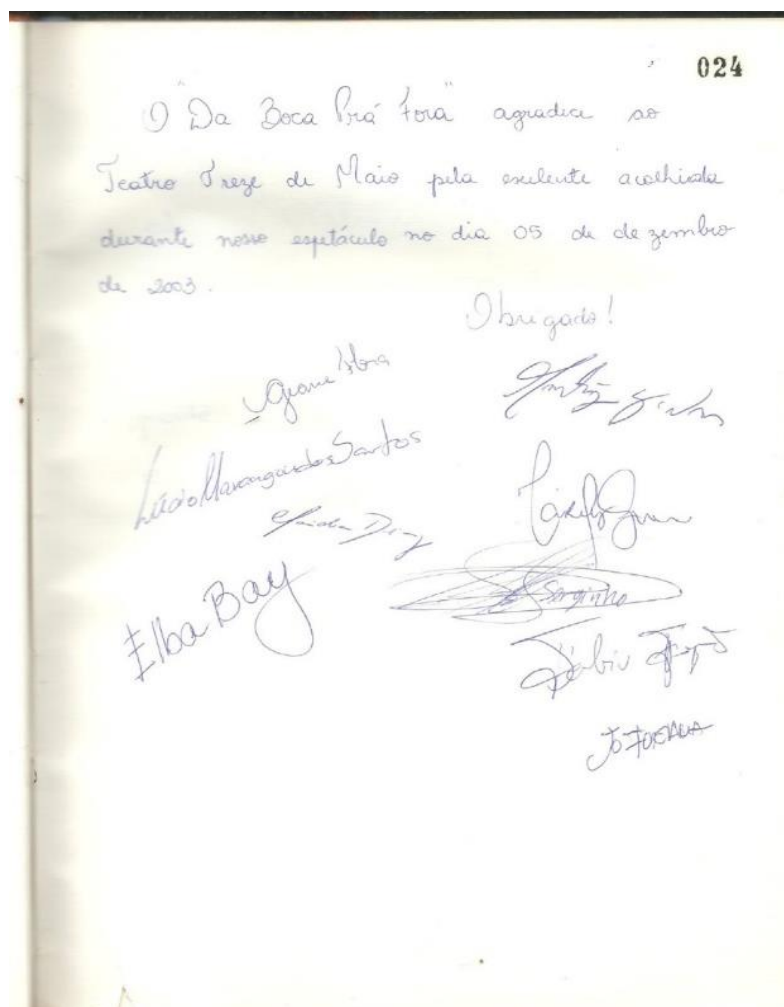 024
O "Da Boca Prá Fora" agradece ao
Teatro Treze de Maio pela exelente acolhida
durante nosso espetáculo no dia 05 de dezembro
de 2003.
Obrigado!
Lúcio Marangon dos Santos
Elba Bay
Serginho
Fábio